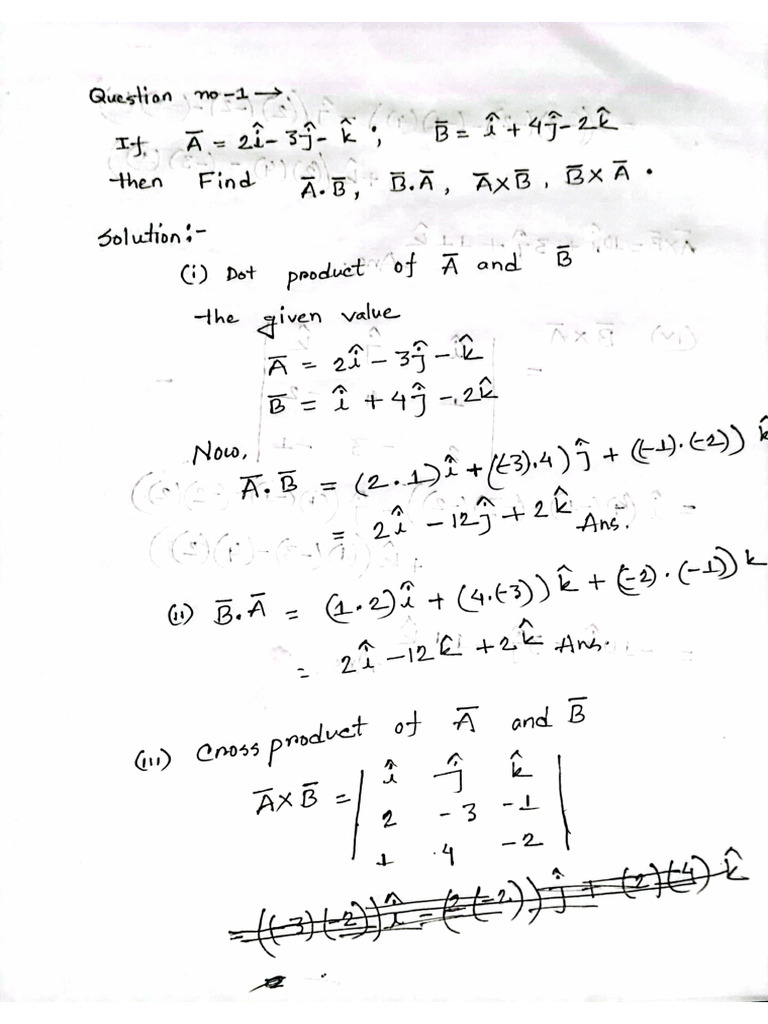 Question no-1 →
If, A̅ = 2î - 3ĵ - k̂ ; B̅ = î + 4ĵ - 2k̂
then Find A̅.B̅, B̅.A̅, A̅×B̅, B̅×A̅ .
Solution:-
(i) Dot product of A̅ and B̅
the given value
A̅ = 2î - 3ĵ - k̂
B̅ = î + 4ĵ - 2k̂
Now,
A̅.B̅ = (2.1)î + ((-3).4)ĵ + ((-1).(-2))k̂
= 2î - 12ĵ + 2k̂ Ans.
(ii) B̅.A̅ = (1.2)î + (4.(-3))k̂ + (-2).(-1))k
= 2î - 12k̂ + 2k̂ Ans.
(iii) Cross product of A̅ and B̅
A̅×B̅ = | î ĵ k̂ |
| 2 -3 -1 |
| 1 4 -2 |
= ((-3)(-2))î - (2(-2))ĵ + (2)(4)k̂